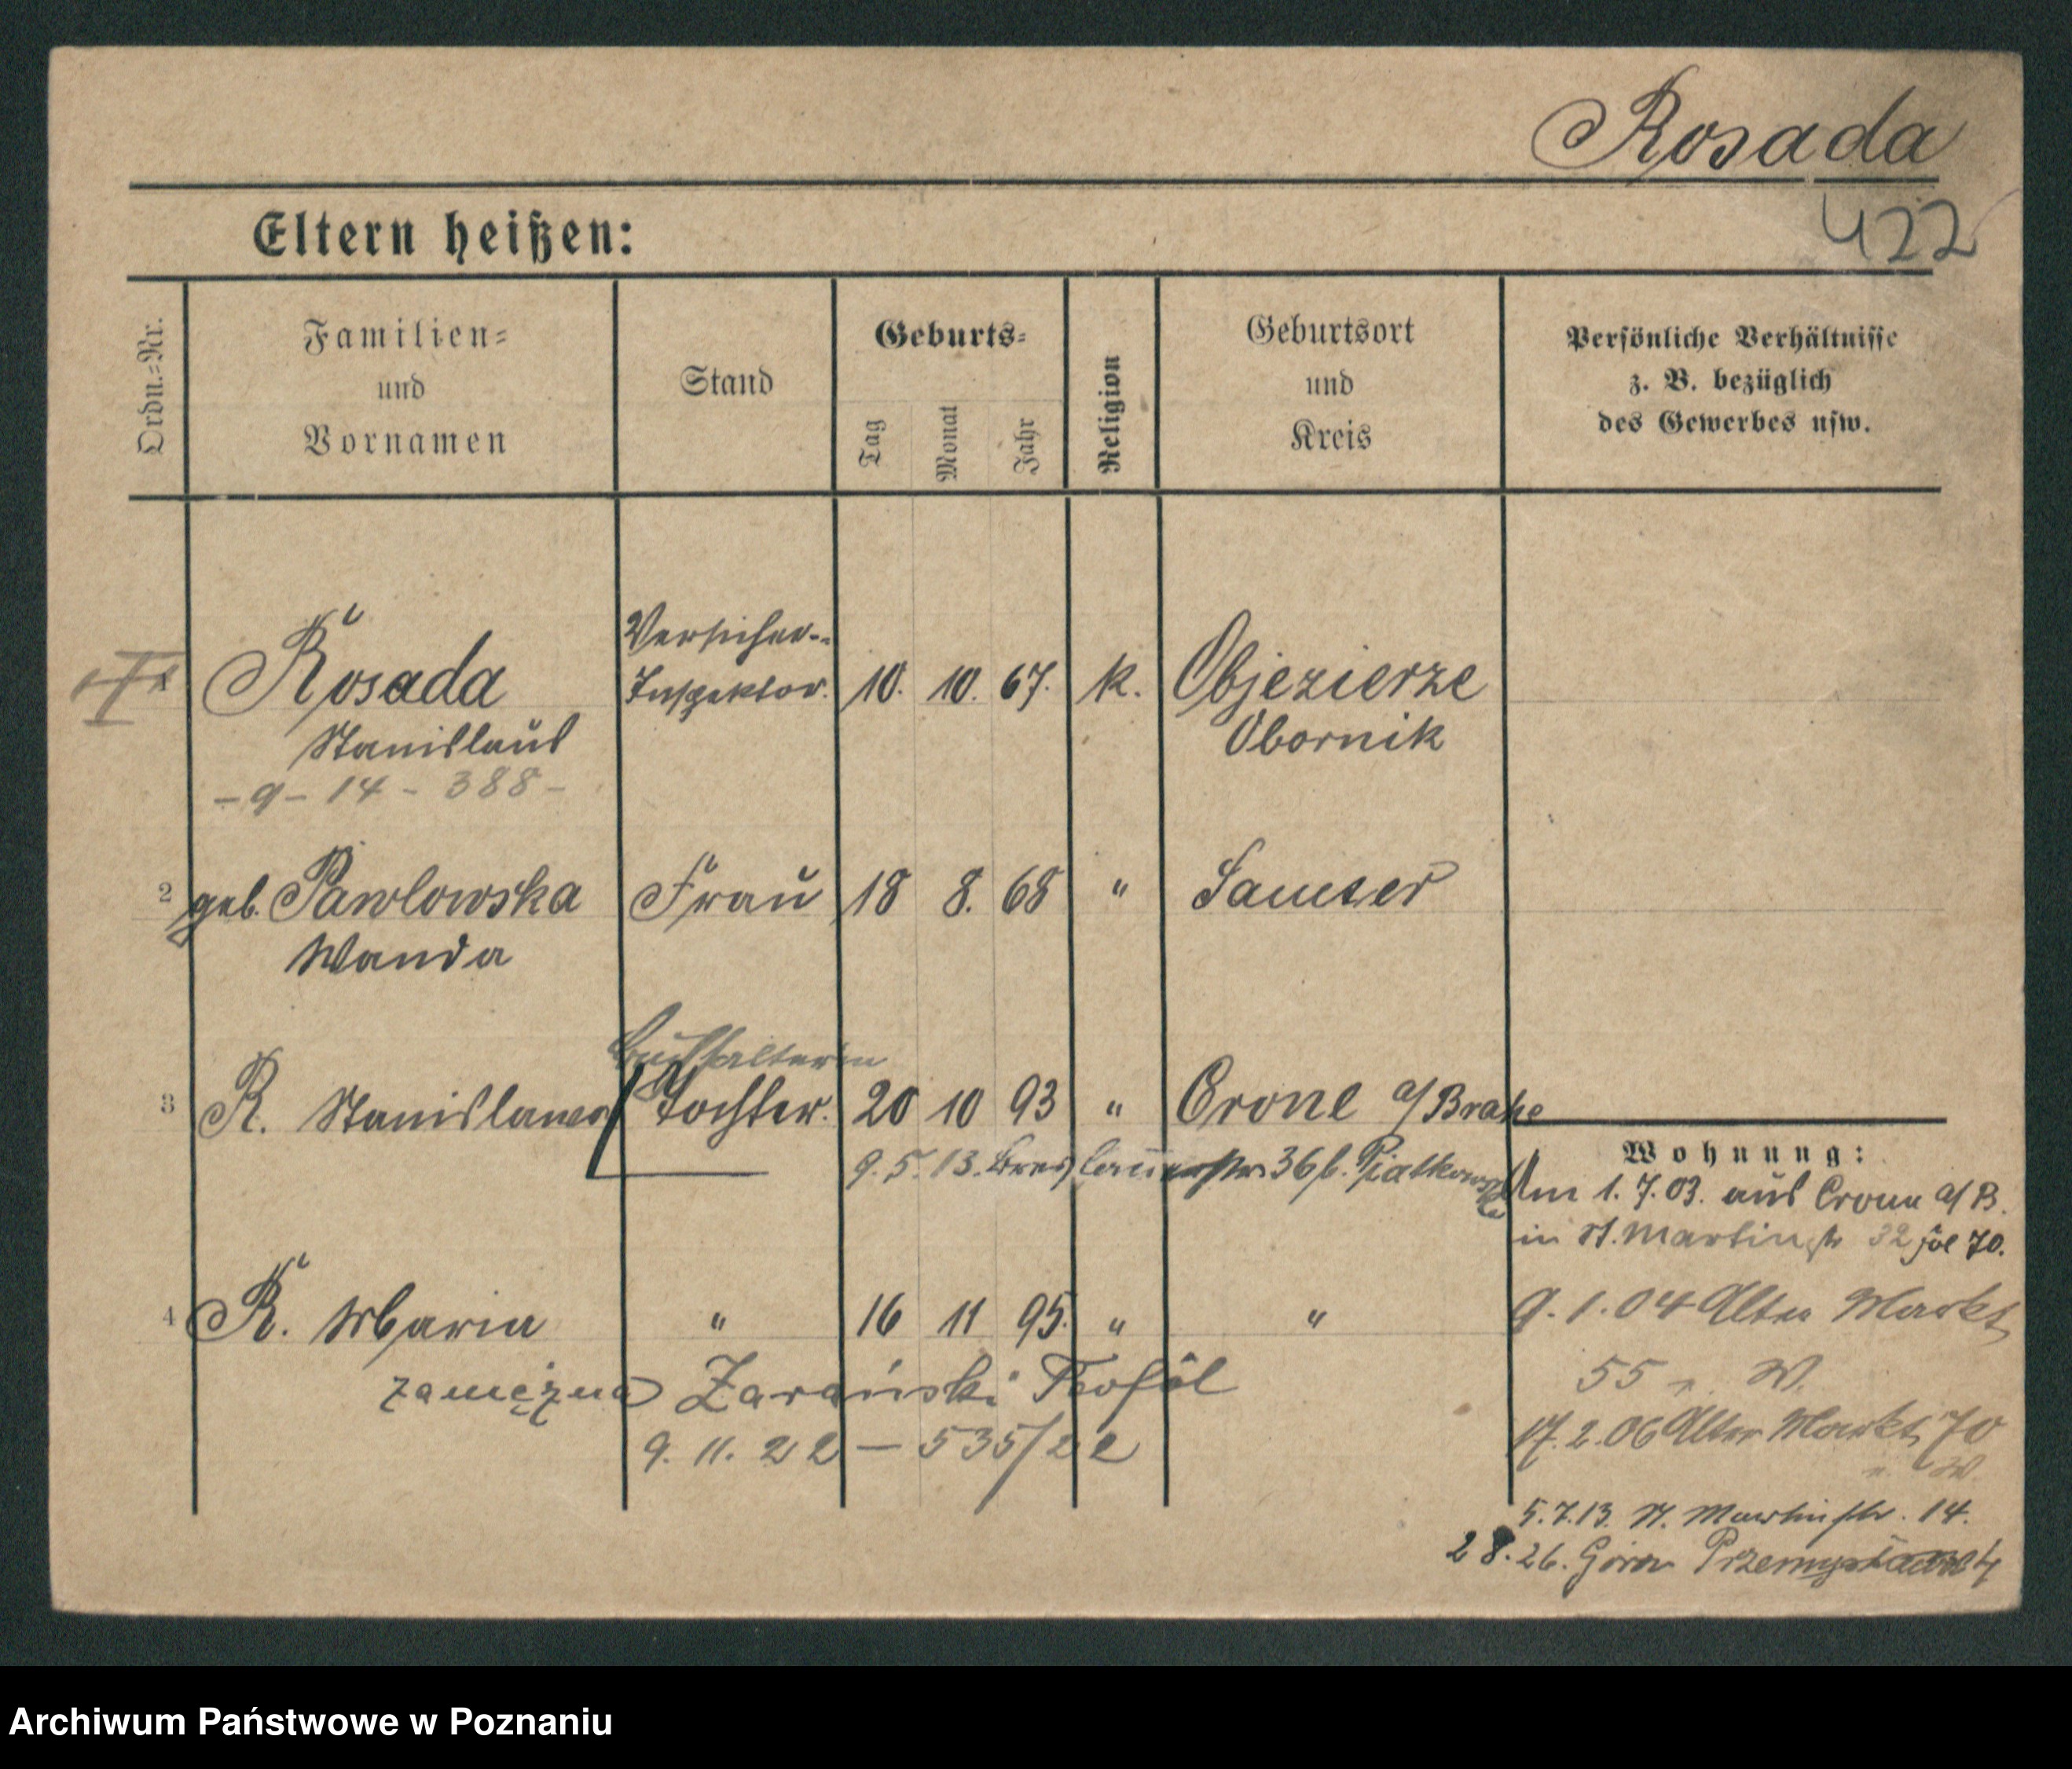 Rosada
422
Eltern heißen:
Ordn.=Nr.
Familien=
und
Vornamen
Stand
Geburts=
Tag
Monat
Jahr
Religion
Geburtsort
und
Kreis
Persönliche Verhältnisse
z. B. bezüglich
des Gewerbes usw.
Rosada Versicher.- Inspektor. 10. 10. 67. k. Objezierze
Stanislaus Obornik
- 9 - 14 - 388 -
2 geb. Pawlowska Frau 18 8. 68 " Samter
Wanda
Buchhalterin
3 R. Stanislawa Tochter. 20 10 93 " Crone a/Brahe
9. 5. 13. Breslauerstr. 36 b. Piatkowska
Wohnung:
Am 1. 7. 03. aus Crone a/B.
in St. Martinstr 32
9. 1. 04 Alter Markt
55 W.
4 R. Maria " 16 11 95. " "
zamężna Zarański Teofil
9. 11. 22 — 535/22
17. 2. 06 Alter Markt 70
W
5. 7. 13. St. Martinstr. 14.
28. 26. Góra Przemysława 4
Archiwum Państwowe w Poznaniu